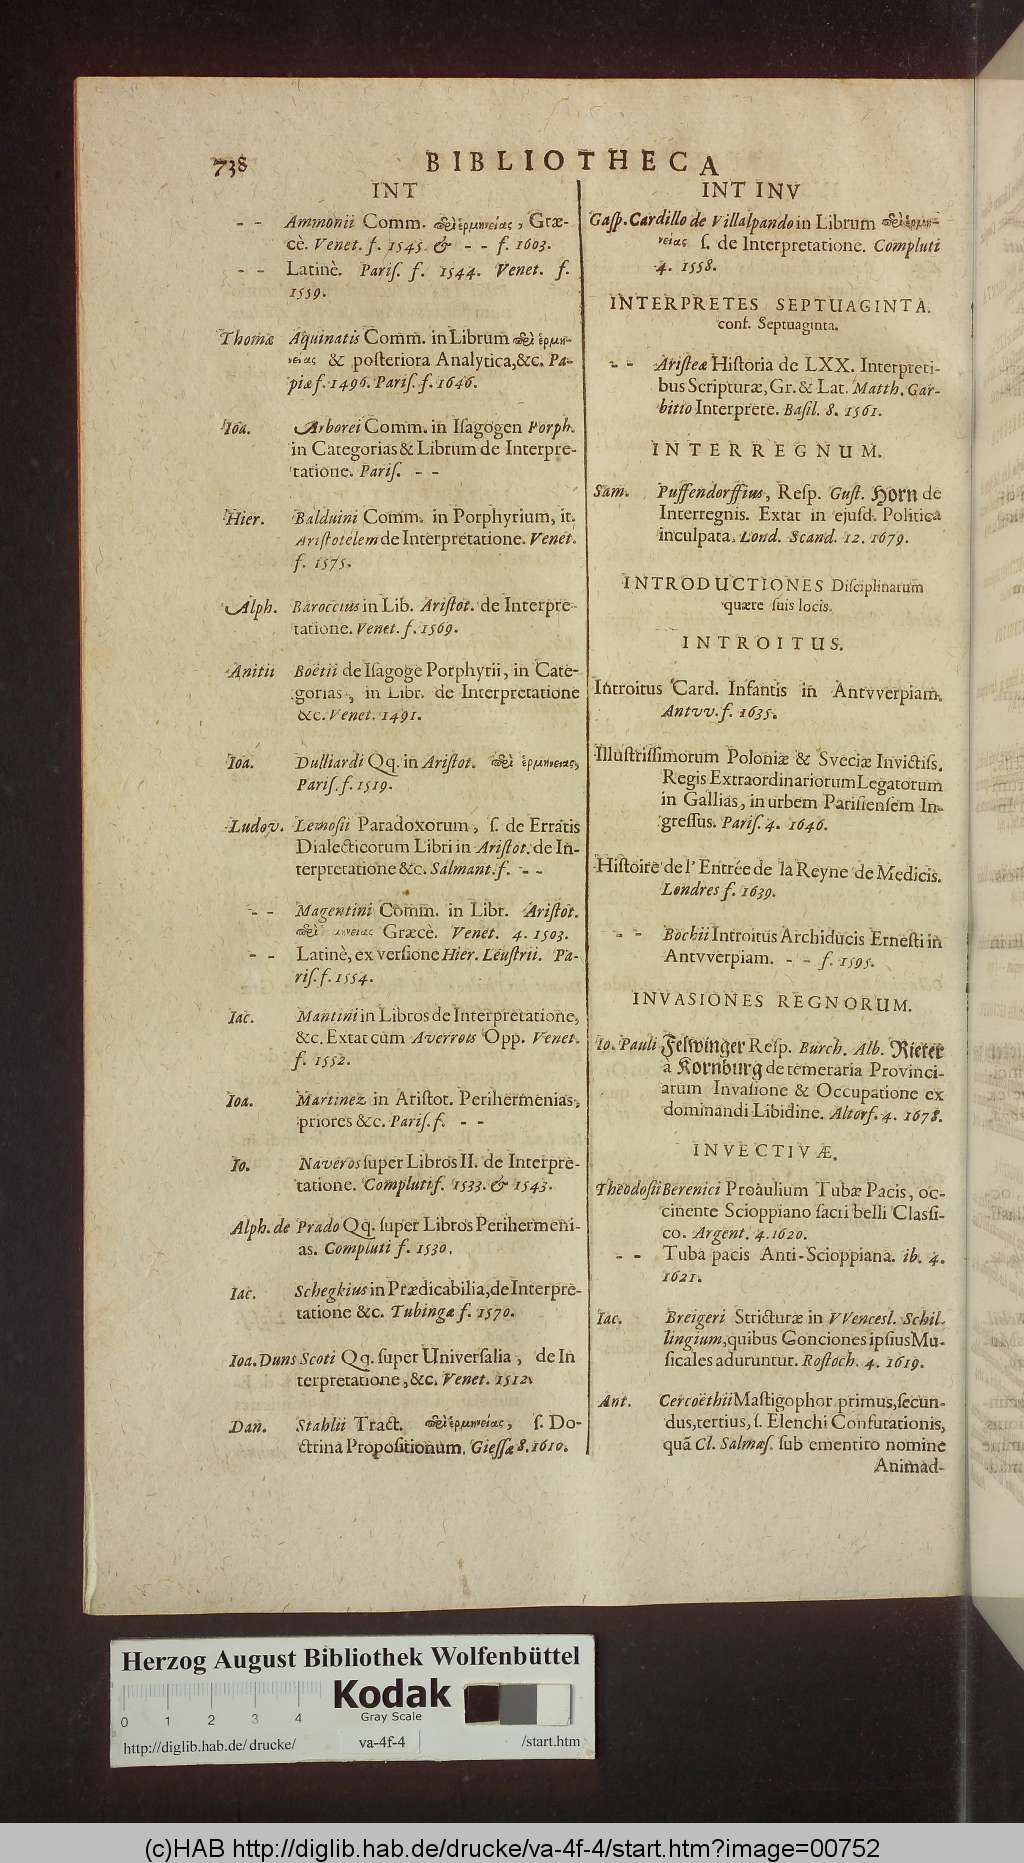 738 BIBLIOTHECA
INT
- - Ammonii Comm. περὶ ἑρμηνείας, Græ-
cè. Venet. f. 1545. & - - f. 1603.
- - Latinè. Pariſ. f. 1544. Venet. f.
1559.
Thomæ Aquinatis Comm. in Librum περὶ ἑρμη-
νείας & poſteriora Analytica, &c. Pa-
piæ f. 1496. Pariſ. f. 1646.
Ioa. Arborei Comm. in Iſagogen Porph.
in Categorias & Librum de Interpre-
tatione. Pariſ. - -
Hier. Balduini Comm. in Porphyrium, it.
Ariſtotelem de Interpretatione. Venet.
f. 1575.
Alph. Baroccius in Lib. Ariſtot. de Interpre-
tatione. Venet. f. 1569.
Anitii Boëtii de Iſagoge Porphyrii, in Cate-
gorias, in Libr. de Interpretatione
&c. Venet. 1491.
Ioa. Dulliardi Qq. in Ariſtot. περὶ ἑρμηνειας,
Pariſ. f. 1519.
Ludov. Lemoſii Paradoxorum, ſ. de Erratis
Dialecticorum Libri in Ariſtot. de In-
terpretatione &c. Salmant. f. - -
- - Magentini Comm. in Libr. Ariſtot.
περὶ μηνειας Græcè. Venet. 4. 1503.
- - Latinè, ex verſione Hier. Leuſtrii. Pa-
riſ. f. 1554.
Iac. Mantini in Libros de Interpretatione,
&c. Extat cum Averrois Opp. Venet.
f. 1552.
Ioa. Martinez in Ariſtot. Perihermenias,
priores &c. Pariſ. f. - -
Io. Naveros ſuper Libros II. de Interpre-
tatione. Compluti f. 1533. & 1543.
Alph. de Prado Qq. ſuper Libros Perihermeni-
as. Compluti f. 1530.
Iac. Schegkius in Prædicabilia, de Interpre-
tatione &c. Tubingæ f. 1570.
Ioa. Duns Scoti Qq. ſuper Univerſalia, de In
terpretatione, &c. Venet. 1512.
Dan. Stahlii Tract. περὶ ἑρμηνείας, ſ. Do-
ctrina Propoſitionum. Gieſſæ 8. 1610.
INT INV
Gaſp. Cardillo de Villalpando in Librum περὶ ἑρμη-
νειας ſ. de Interpretatione. Compluti
4. 1558.
INTERPRETES SEPTUAGINTA.
conf. Septuaginta.
- - Ariſteæ Hiſtoria de LXX. Interpreti-
bus Scripturæ, Gr. & Lat. Matth. Gar-
bitio Interprete. Baſil. 8. 1561.
INTERREGNUM.
Sam. Puffendorffius, Reſp. Guſt. Horn de
Interregnis. Extat in ejuſd. Politica
inculpata. Lond. Scand. 12. 1679.
INTRODUCTIONES Diſciplinarum
quære ſuis locis.
INTROITUS.
Introitus Card. Infantis in Antvverpiam.
Antvv. f. 1635.
Illuſtriſſimorum Poloniæ & Sveciæ Invictiſs.
Regis Extraordinariorum Legatorum
in Gallias, in urbem Pariſienſem In-
greſſus. Pariſ. 4. 1646.
Hiſtoire de l' Entrée de la Reyne de Medicis.
Londres f. 1639.
- - Bochii Introitus Archiducis Erneſti in
Antvverpiam. - - f. 1595.
INVASIONES REGNORUM.
Io. Pauli Felwinger Reſp. Burch. Alb. Rieter
à Kornburg de temeraria Provinci-
arum Invaſione & Occupatione ex
dominandi Libidine. Altorf. 4. 1678.
INVECTIVÆ.
Theodoſii Berenici Proaulium Tubæ Pacis, oc-
cinente Scioppiano ſacri belli Claſſi-
co. Argent. 4. 1620.
- - Tuba pacis Anti-Scioppiana. ib. 4.
1621.
Iac. Breigeri Stricturæ in VVencesl. Schil-
lingium, quibus Conciones ipſius Mu-
ſicales aduruntur. Roſtoch. 4. 1619.
Ant. Cercoëthii Maſtigophor. primus, ſecun-
dus, tertius, ſ. Elenchi Confutationis,
quã Cl. Salmaſ. ſub ementito nomine
Animad-
Herzog August Bibliothek Wolfenbüttel
Kodak
Gray Scale
0 1 2 3 4
http://diglib.hab.de/drucke/ va-4f-4 /start.htm
(c)HAB http://diglib.hab.de/drucke/va-4f-4/start.htm?image=00752